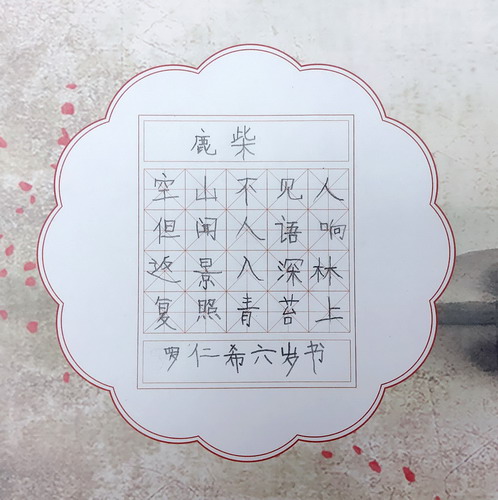 鹿柴
空山不见人
但闻人语响
返景入深林
复照青苔上
罗仁希六岁书